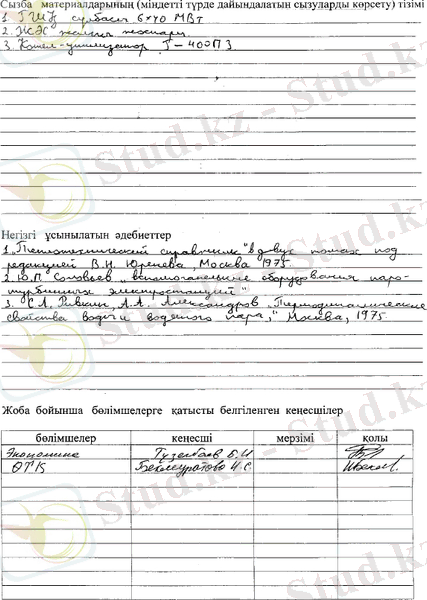 Сызба материалдарының (міндетті түрде дайындалатын сызуларды көрсету) тізімі
1. ГТҚ сұлбасы 6×40 МВт
2. ЖЭС жалпы жоспары
3. Котел-утилизатор Г-400ПЗ
Негізгі ұсынылатын әдебиеттер
1. „Теплотехнический справочник" в двух томах под
редакцией В.Н. Юренева, Москва 1975.
2. Ю.П. Соловьев „вспомогательные оборудования паро-
турбинных электростанций"
3. С.Л. Ривкин, А.А. Александров „Термодинамические
свойства воды и водяного пара," Москва, 1975
Жоба бойынша бөлімшелерге қатысты белгіленген кеңесшілер
бөлімшелер кеңесші мерзімі қолы
Экономика Тузелбаев Б.И
ӨТҚ Бекмуратова Н.С.
Stud.kz - Stud.kz